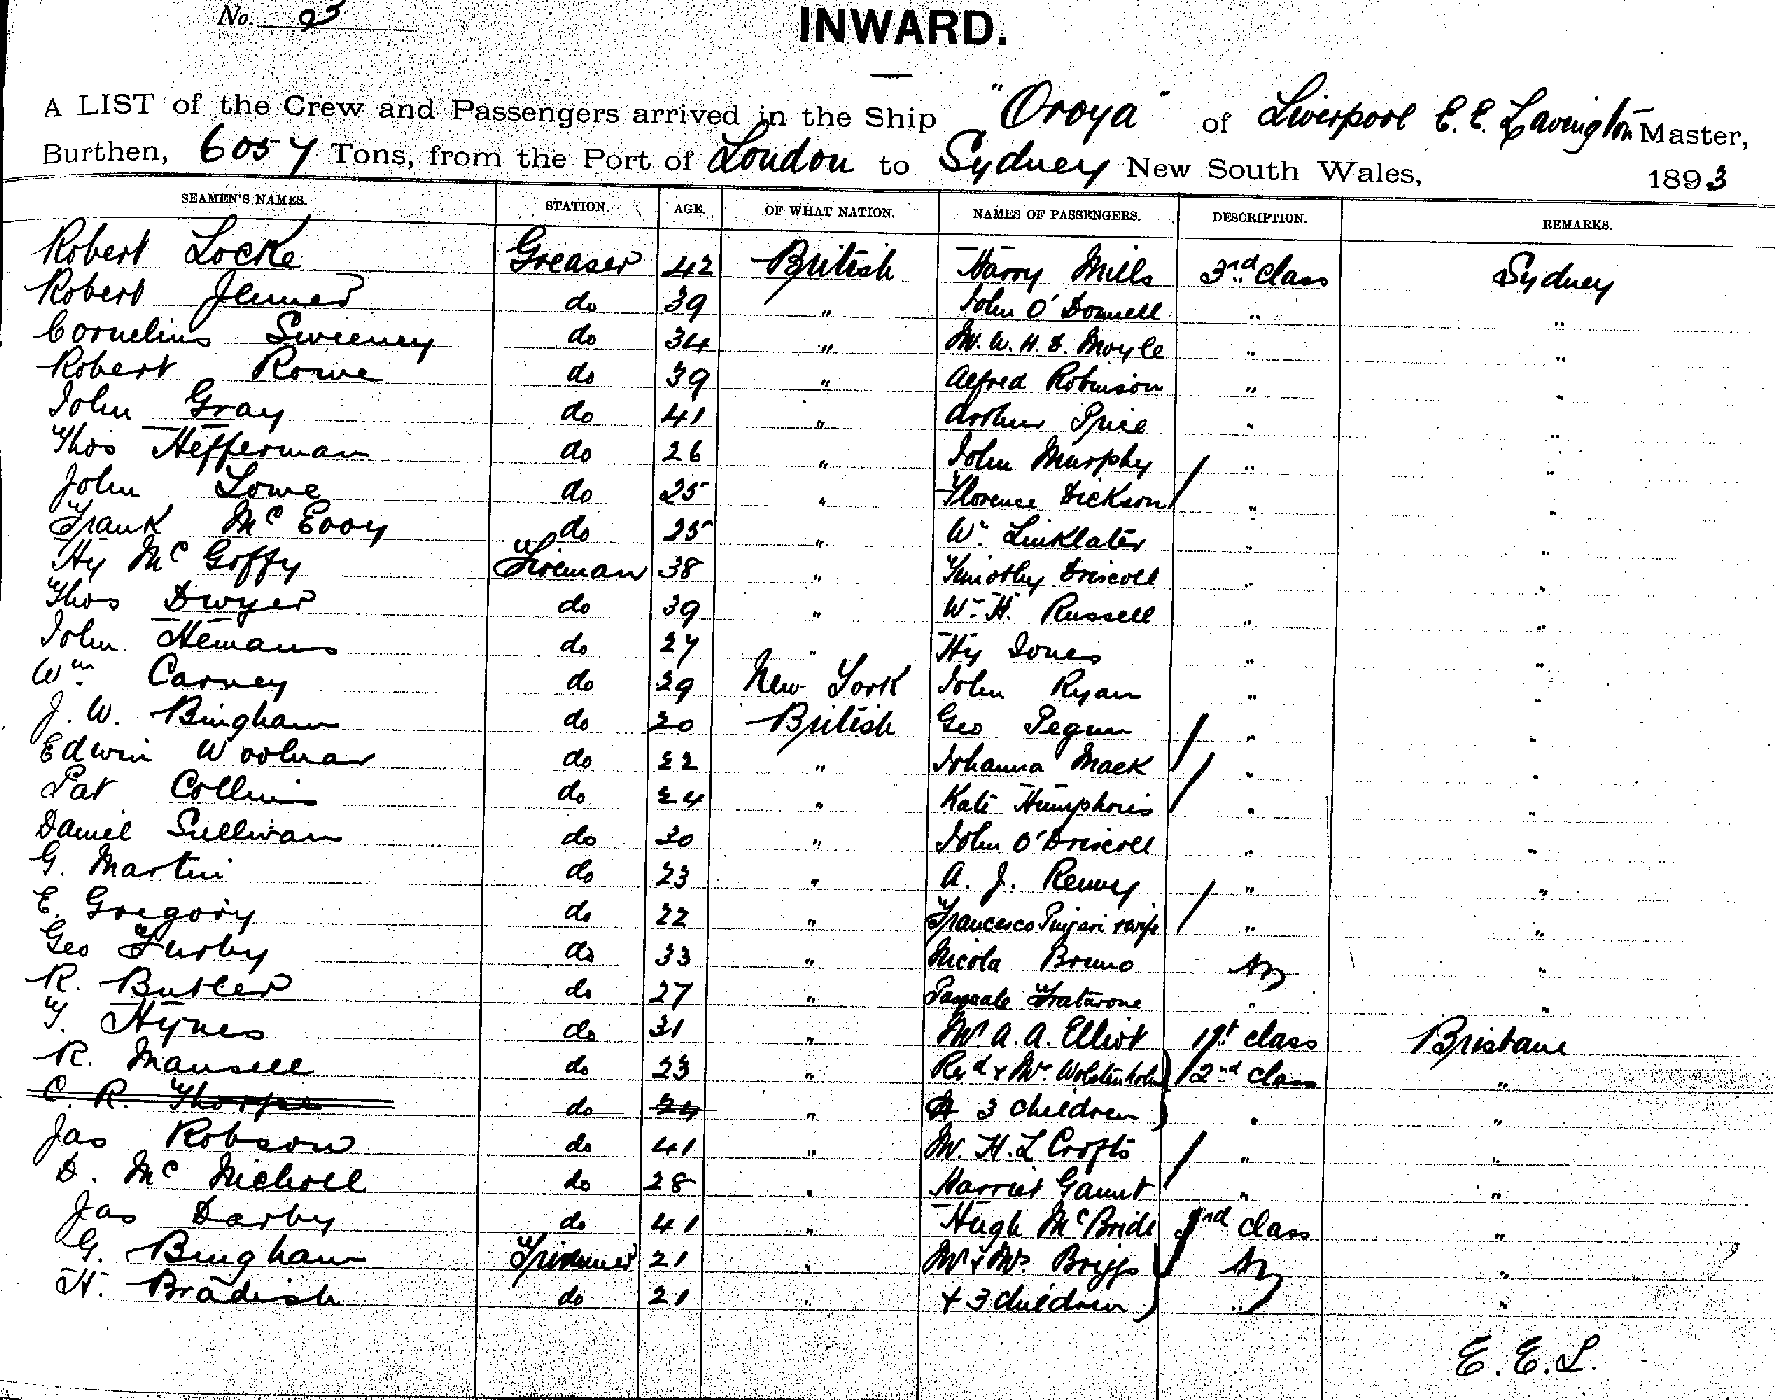 No. 23
INWARD.
A LIST of the Crew and Passengers arrived in the Ship "Oroya" of Liverpool E. E. Lavington Master,
Burthen, 6057 Tons, from the Port of London to Sydney New South Wales, 1893
SEAMEN'S NAMES. STATION. AGE. OF WHAT NATION. NAMES OF PASSENGERS. DESCRIPTION. REMARKS.
Robert Locke Greaser 42 British Harry Mills 3rd class Sydney
Robert do 39 " John O'Donnell " "
Cornelius Sweeney do 34 " Mr. W. H. S. Moyle " "
Robert Rowe do 39 " Alfred Robinson " "
John Gray do 41 " Arthur Price " "
Thos Hefferman do 26 " John Murphy / " "
John Lowe do 25 " Florence Dickson / " "
Frank McEvoy do 25 " Wm Linklater " "
Hy McGoffy Fireman 38 " Timothy Driscoll " "
Thos Dwyer do 39 " Wm H. Russell " "
John Hemans do 27 " Hy Jones " "
Wm Carney do 29 New York John Ryan " "
J. W. Bingham do 20 British Geo Pegum / " "
Edwin Woolnar do 22 " Johanna Mack / " "
Pat Collins do 24 " Kate Humphries / " "
Daniel Sullivan do 30 " John O'Driscoll " "
G. Martin do 23 " A. J. Renny / " "
E. Gregory do 22 " Francesco wife / " "
Geo Furby do 33 " Nicola Bruno "
R. Butler do 27 " Pasquale Fratarone " "
T. Hynes do 31 " Mr A. A. Elliot 1st class Brisbane
R. Mansell do 23 " Revd & Mrs Wolstenholm / 2nd class "
C. R. Thorpe do 24 " & 3 children " "
Jas Robson do 41 " Mr. H. L Crofts / " "
D. McNicholl do 28 " Harriet Gaunt " "
Jas Darby do 41 " Hugh McBride 3rd class "
G. Bingham Trimmer 21 " Mr & Mrs. Briggs / "
H. Bradish do 21 " & 3 children " "
E. E. L.